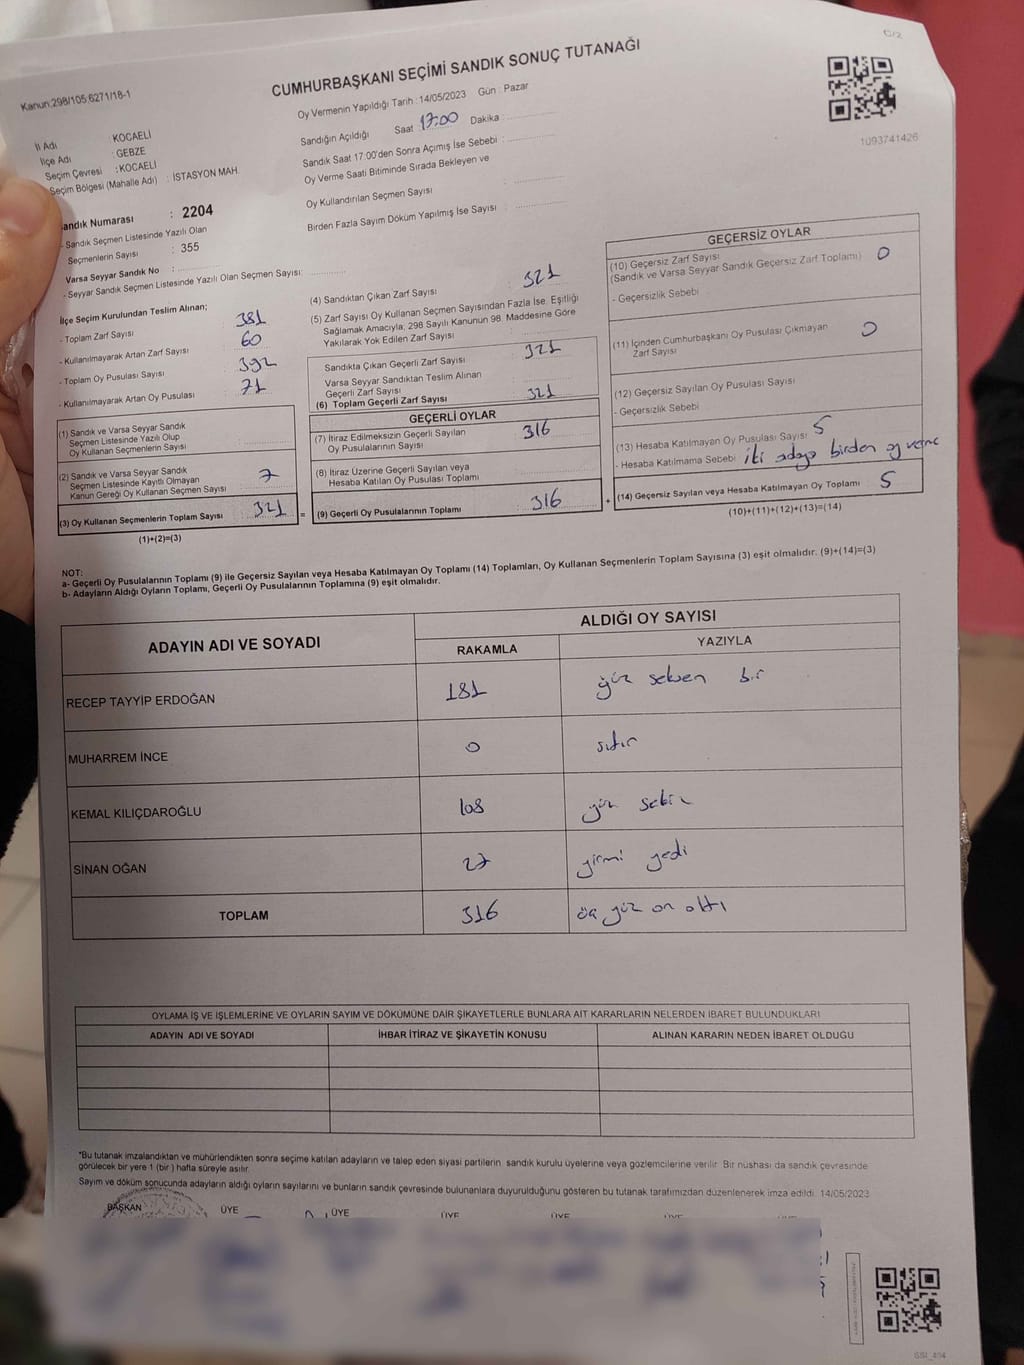 C/2
Kanun:298/105;6271/18-1
CUMHURBAŞKANI SEÇİMİ SANDIK SONUÇ TUTANAĞI
1093741426
İl Adı : KOCAELİ
İlçe Adı : GEBZE
Seçim Çevresi : KOCAELİ
Seçim Bölgesi (Mahalle Adı) : İSTASYON MAH.
andık Numarası : 2204
- Sandık Seçmen Listesinde Yazılı Olan
Seçmenlerin Sayısı : 355
Varsa Seyyar Sandık No :
- Seyyar Sandık Seçmen Listesinde Yazılı Olan Seçmen Sayısı:
Oy Vermenin Yapıldığı Tarih : 14/05/2023 Gün : Pazar
Sandığın Açıldığı Saat 17:00 Dakika
Sandık Saat 17:00'den Sonra Açımış İse Sebebi :
Oy Verme Saati Bitiminde Sırada Bekleyen ve
Oy Kullandırılan Seçmen Sayısı :
Birden Fazla Sayım Döküm Yapılmış İse Sayısı :
İlçe Seçim Kurulundan Teslim Alınan;
- Toplam Zarf Sayısı : 381
- Kullanılmayarak Artan Zarf Sayısı : 60
- Toplam Oy Pusulası Sayısı : 392
- Kullanılmayarak Artan Oy Pusulası : 71
(1) Sandık ve Varsa Seyyar Sandık
Seçmen Listesinde Yazılı Olup
Oy Kullanan Seçmenlerin Sayısı :
(2) Sandık ve Varsa Seyyar Sandık
Seçmen Listesinde Kayıtlı Olmayan
Kanun Gereği Oy Kullanan Seçmen Sayısı : 7
(3) Oy Kullanan Seçmenlerin Toplam Sayısı : 321 =
(1)+(2)=(3)
(4) Sandıktan Çıkan Zarf Sayısı : 321
(5) Zarf Sayısı Oy Kullanan Seçmen Sayısından Fazla İse, Eşitliği
Sağlamak Amacıyla; 298 Sayılı Kanunun 98. Maddesine Göre
Yakılarak Yok Edilen Zarf Sayısı :
Sandıkta Çıkan Geçerli Zarf Sayısı : 321
Varsa Seyyar Sandıktan Teslim Alınan
Geçerli Zarf Sayısı :
(6) Toplam Geçerli Zarf Sayısı : 321
GEÇERLİ OYLAR
(7) İtiraz Edilmeksizin Geçerli Sayılan
Oy Pusulalarının Sayısı : 316
(8) İtiraz Üzerine Geçerli Sayılan veya
Hesaba Katılan Oy Pusulası Toplamı :
(9) Geçerli Oy Pusulalarının Toplamı : 316 +
GEÇERSİZ OYLAR
(10) Geçersiz Zarf Sayısı
(Sandık ve Varsa Seyyar Sandık Geçersiz Zarf Toplamı) : 0
- Geçersizlik Sebebi :
(11) İçinden Cumhurbaşkanı Oy Pusulası Çıkmayan
Zarf Sayısı : 0
(12) Geçersiz Sayılan Oy Pusulası Sayısı :
- Geçersizlik Sebebi :
(13) Hesaba Katılmayan Oy Pusulası Sayısı : 5
- Hesaba Katılmama Sebebi : iki adaya birden oy verme
(14) Geçersiz Sayılan veya Hesaba Katılmayan Oy Toplamı : 5
(10)+(11)+(12)+(13)=(14)
NOT:
a- Geçerli Oy Pusulalarının Toplamı (9) ile Geçersiz Sayılan veya Hesaba Katılmayan Oy Toplamı (14) Toplamları, Oy Kullanan Seçmenlerin Toplam Sayısına (3) eşit olmalıdır. (9)+(14)=(3)
b- Adayların Aldığı Oyların Toplamı, Geçerli Oy Pusulalarının Toplamına (9) eşit olmalıdır.
ADAYIN ADI VE SOYADI ALDIĞI OY SAYISI
RAKAMLA YAZIYLA
RECEP TAYYİP ERDOĞAN 181 yüz seksen bir
MUHARREM İNCE 0 sıfır
KEMAL KILIÇDAROĞLU 108 yüz sekiz
SİNAN OĞAN 27 yirmi yedi
TOPLAM 316 üç yüz on altı
OYLAMA İŞ VE İŞLEMLERİNE VE OYLARIN SAYIM VE DÖKÜMÜNE DAİR ŞİKAYETLERLE BUNLARA AİT KARARLARIN NELERDEN İBARET BULUNDUKLARI
ADAYIN ADI VE SOYADI İHBAR İTİRAZ VE ŞİKAYETİN KONUSU ALINAN KARARIN NEDEN İBARET OLDUĞU
*Bu tutanak imzalandıktan ve mühürlendikten sonra seçime katılan adayların ve talep eden siyasi partilerin sandık kurulu üyelerine veya gözlemcilerine verilir. Bir nüshası da sandık çevresinde
görülecek bir yere 1 (bir ) hafta süreyle asılır.
Sayım ve döküm sonucunda adayların aldığı oyların sayılarını ve bunların sandık çevresinde bulunanlara duyurulduğunu gösteren bu tutanak tarafımızdan düzenlenerek imza edildi. 14/05/2023
BAŞKAN ÜYE ÜYE ÜYE ÜYE ÜYE ÜYE